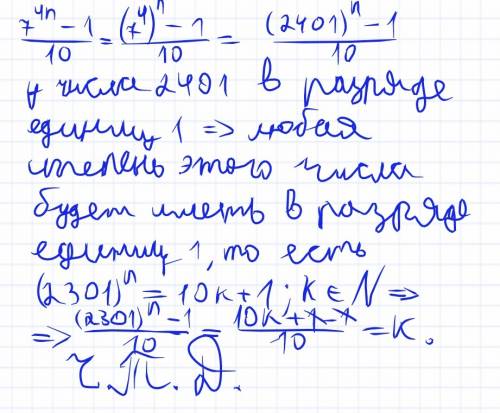 (7^{4n} - 1)/10 = ((7^4)^n - 1)/10 = ((2401)^n - 1)/10
у числа 2401 в разряде
единиц 1 => любая
степень этого числа
будет иметь в разряде
единиц 1, то есть
(2301)^n = 10k + 1; k ∈ N =>
=> ((2301)^n - 1)/10 = (10k + 1 - 1)/10 = k.
Ч.Т.Д.